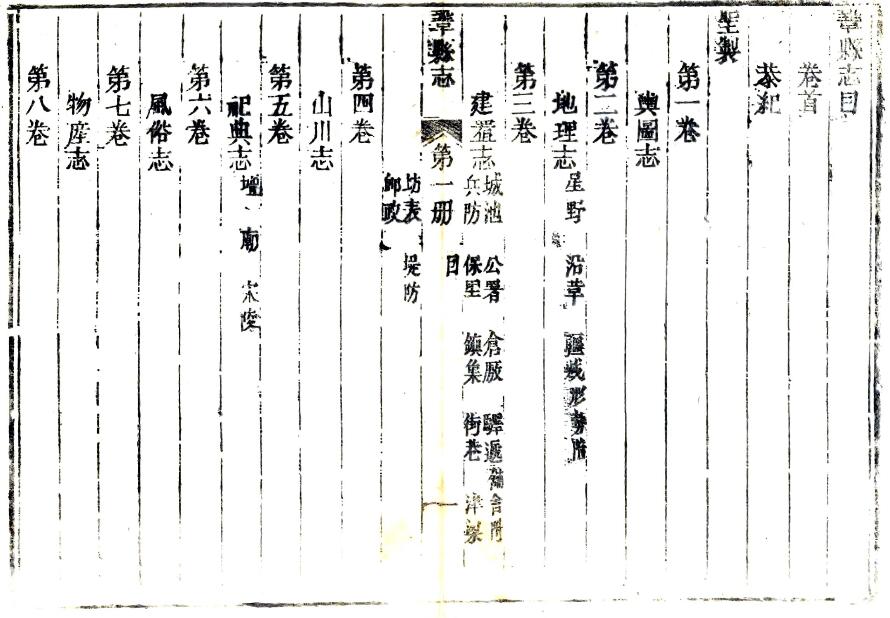 鞏縣志目
卷首
恭紀
聖製
第一卷
輿圖志
第二卷
地理志 星野 沿革 疆域形勢附
第三卷
建置志 城池 公署 倉廒 驛遞舖舍附
兵防 保里 鎮集 街巷 津梁
鞏縣志 第一册 目 一
坊表 堤防
郵政
第四卷
山川志
第五卷
祀典志 壇 廟 宋陵
第六卷
風俗志
第七卷
物産志
第八卷